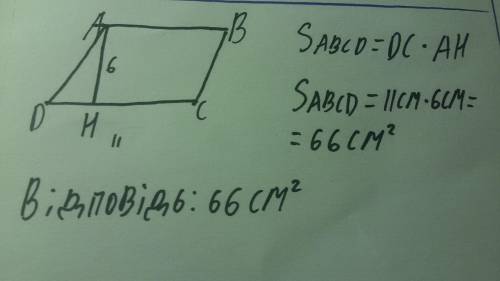 A
B
6
D
H
C
11
SABCD = DC · AH
SABCD = 11СМ · 6СМ =
= 66 СМ²
Відповідь: 66 СМ²